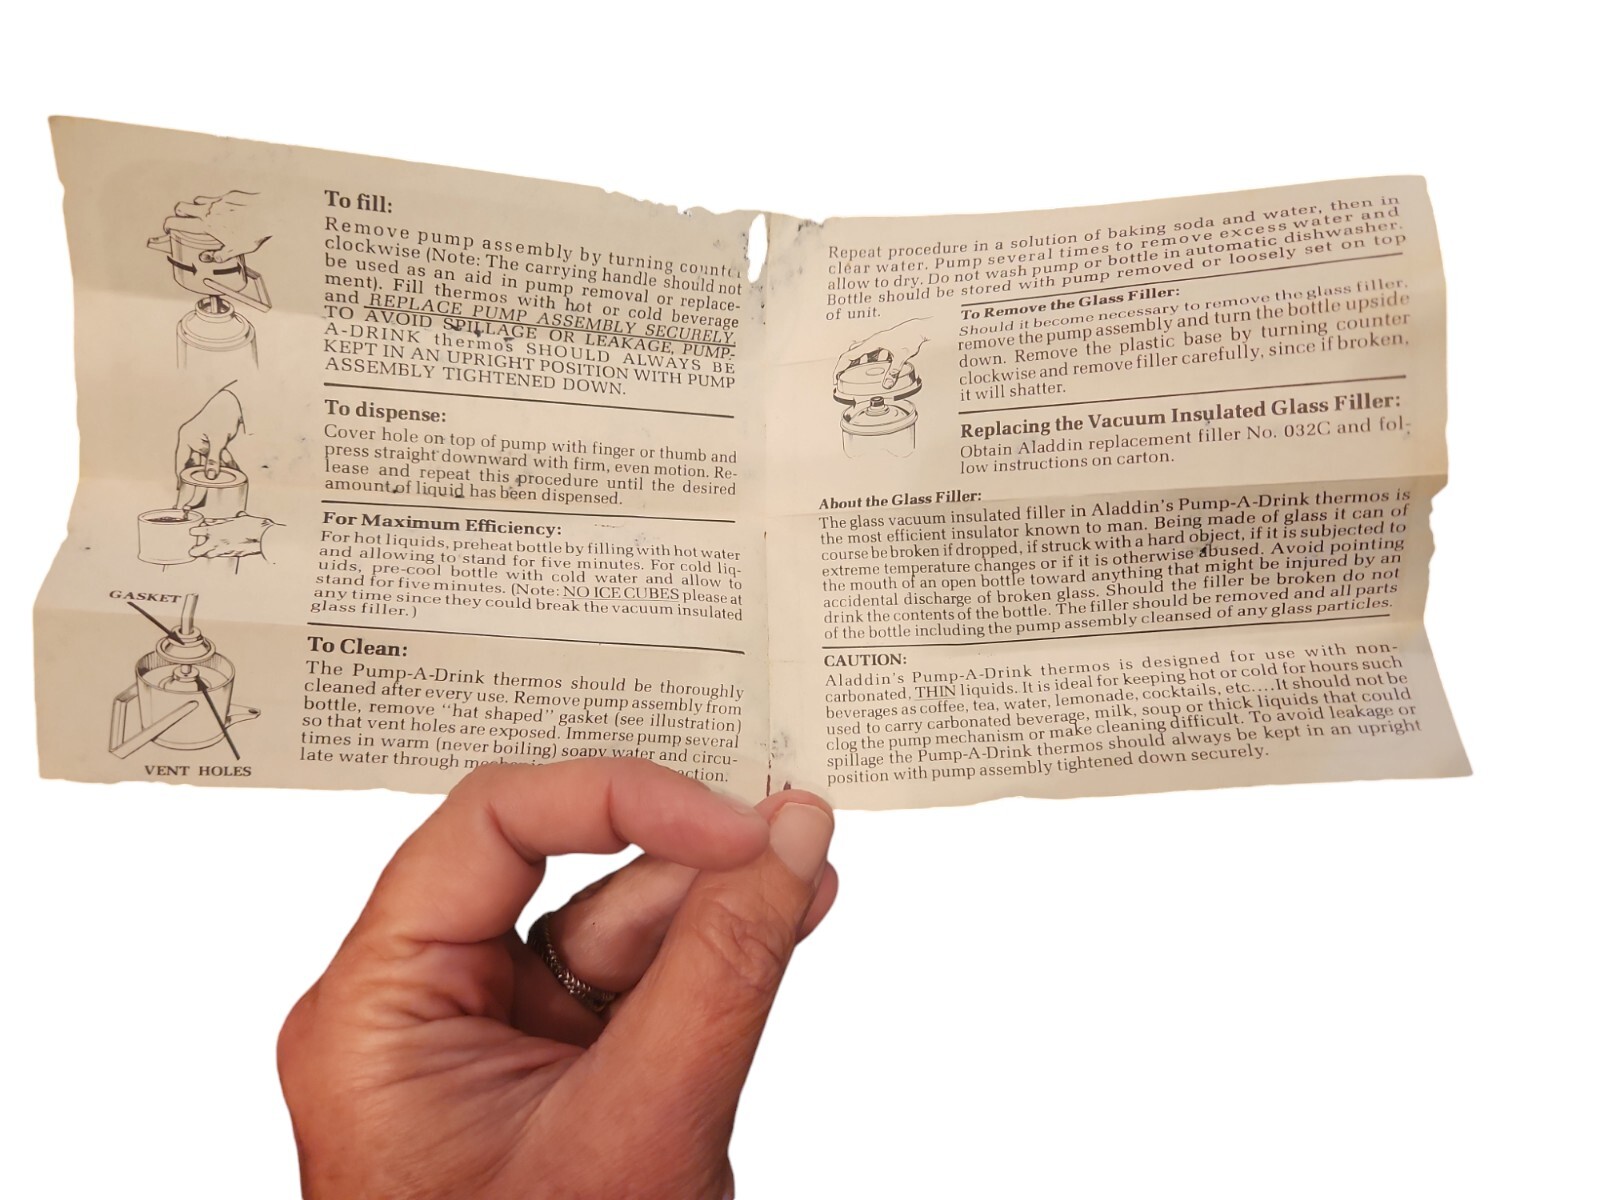 To fill:
Remove pump assembly by turning counter
clockwise (Note: The carrying handle should not
be used as an aid in pump removal or replace-
ment). Fill thermos with hot or cold beverage
and REPLACE PUMP ASSEMBLY SECURELY.
TO AVOID SPILLAGE OR LEAKAGE, PUMP-
A-DRINK thermos SHOULD ALWAYS BE
KEPT IN AN UPRIGHT POSITION WITH PUMP
ASSEMBLY TIGHTENED DOWN.
To dispense:
Cover hole on top of pump with finger or thumb and
press straight downward with firm, even motion. Re-
lease and repeat this procedure until the desired
amount of liquid has been dispensed.
For Maximum Efficiency:
For hot liquids, preheat bottle by filling with hot water
and allowing to stand for five minutes. For cold liq-
uids, pre-cool bottle with cold water and allow to
stand for five minutes. (Note: NO ICE CUBES please at
any time since they could break the vacuum insulated
glass filler.)
GASKET
VENT HOLES
To Clean:
The Pump-A-Drink thermos should be thoroughly
cleaned after every use. Remove pump assembly from
bottle, remove "hat shaped" gasket (see illustration)
so that vent holes are exposed. Immerse pump several
times in warm (never boiling) soapy water and circu-
late water through action.
Repeat procedure in a solution of baking soda and water, then in
clear water. Pump several times to remove excess water and
allow to dry. Do not wash pump or bottle in automatic dishwasher.
Bottle should be stored with pump removed or loosely set on top
of unit.
To Remove the Glass Filler:
Should it become necessary to remove the glass filler,
remove the pump assembly and turn the bottle upside
down. Remove the plastic base by turning counter
clockwise and remove filler carefully, since if broken,
it will shatter.
Replacing the Vacuum Insulated Glass Filler:
Obtain Aladdin replacement filler No. 032C and fol-
low instructions on carton.
About the Glass Filler:
The glass vacuum insulated filler in Aladdin's Pump-A-Drink thermos is
the most efficient insulator known to man. Being made of glass it can of
course be broken if dropped, if struck with a hard object, if it is subjected to
extreme temperature changes or if it is otherwise abused. Avoid pointing
the mouth of an open bottle toward anything that might be injured by an
accidental discharge of broken glass. Should the filler be broken do not
drink the contents of the bottle. The filler should be removed and all parts
of the bottle including the pump assembly cleansed of any glass particles.
CAUTION:
Aladdin's Pump-A-Drink thermos is designed for use with non-
carbonated, THIN liquids. It is ideal for keeping hot or cold for hours such
beverages as coffee, tea, water, lemonade, cocktails, etc....It should not be
used to carry carbonated beverage, milk, soup or thick liquids that could
clog the pump mechanism or make cleaning difficult. To avoid leakage or
spillage the Pump-A-Drink thermos should always be kept in an upright
position with pump assembly tightened down securely.